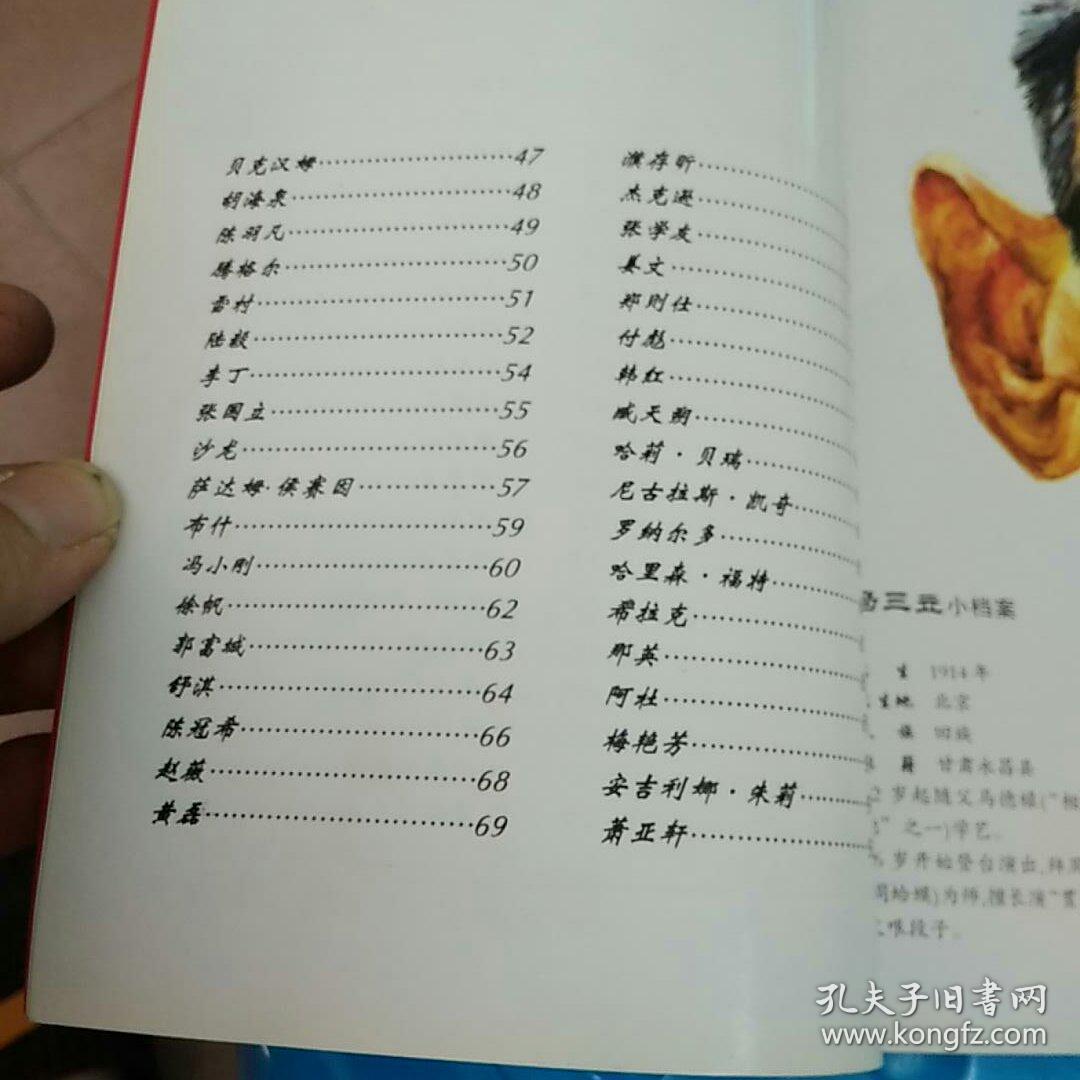 贝克汉姆························47
胡海泉························48
陈羽凡························49
腾格尔························50
雪村························51
陆毅························52
李丁························54
张国立························55
沙龙························56
萨达姆·侯赛因················57
布什························59
冯小刚························60
徐帆························62
郭富城························63
舒淇························64
陈冠希························66
赵薇························68
黄磊························69
濮存昕
杰克逊
张学友
姜文
郑则仕
付彪
韩红
臧天朔
哈莉·贝瑞
尼古拉斯·凯奇
罗纳尔多
哈里森·福特
希拉克
那英
阿杜
梅艳芳
安吉利娜·朱莉
萧亚轩
三立小档案
生 1914年
生地 北京
族 回族
籍 甘肃永昌县
岁起随父马德禄("相
" 之一)学艺。
岁开始登台演出,拜周
蛤蟆)为师,擅长演"贯
段子。
孔夫子旧书网
www.kongfz.com